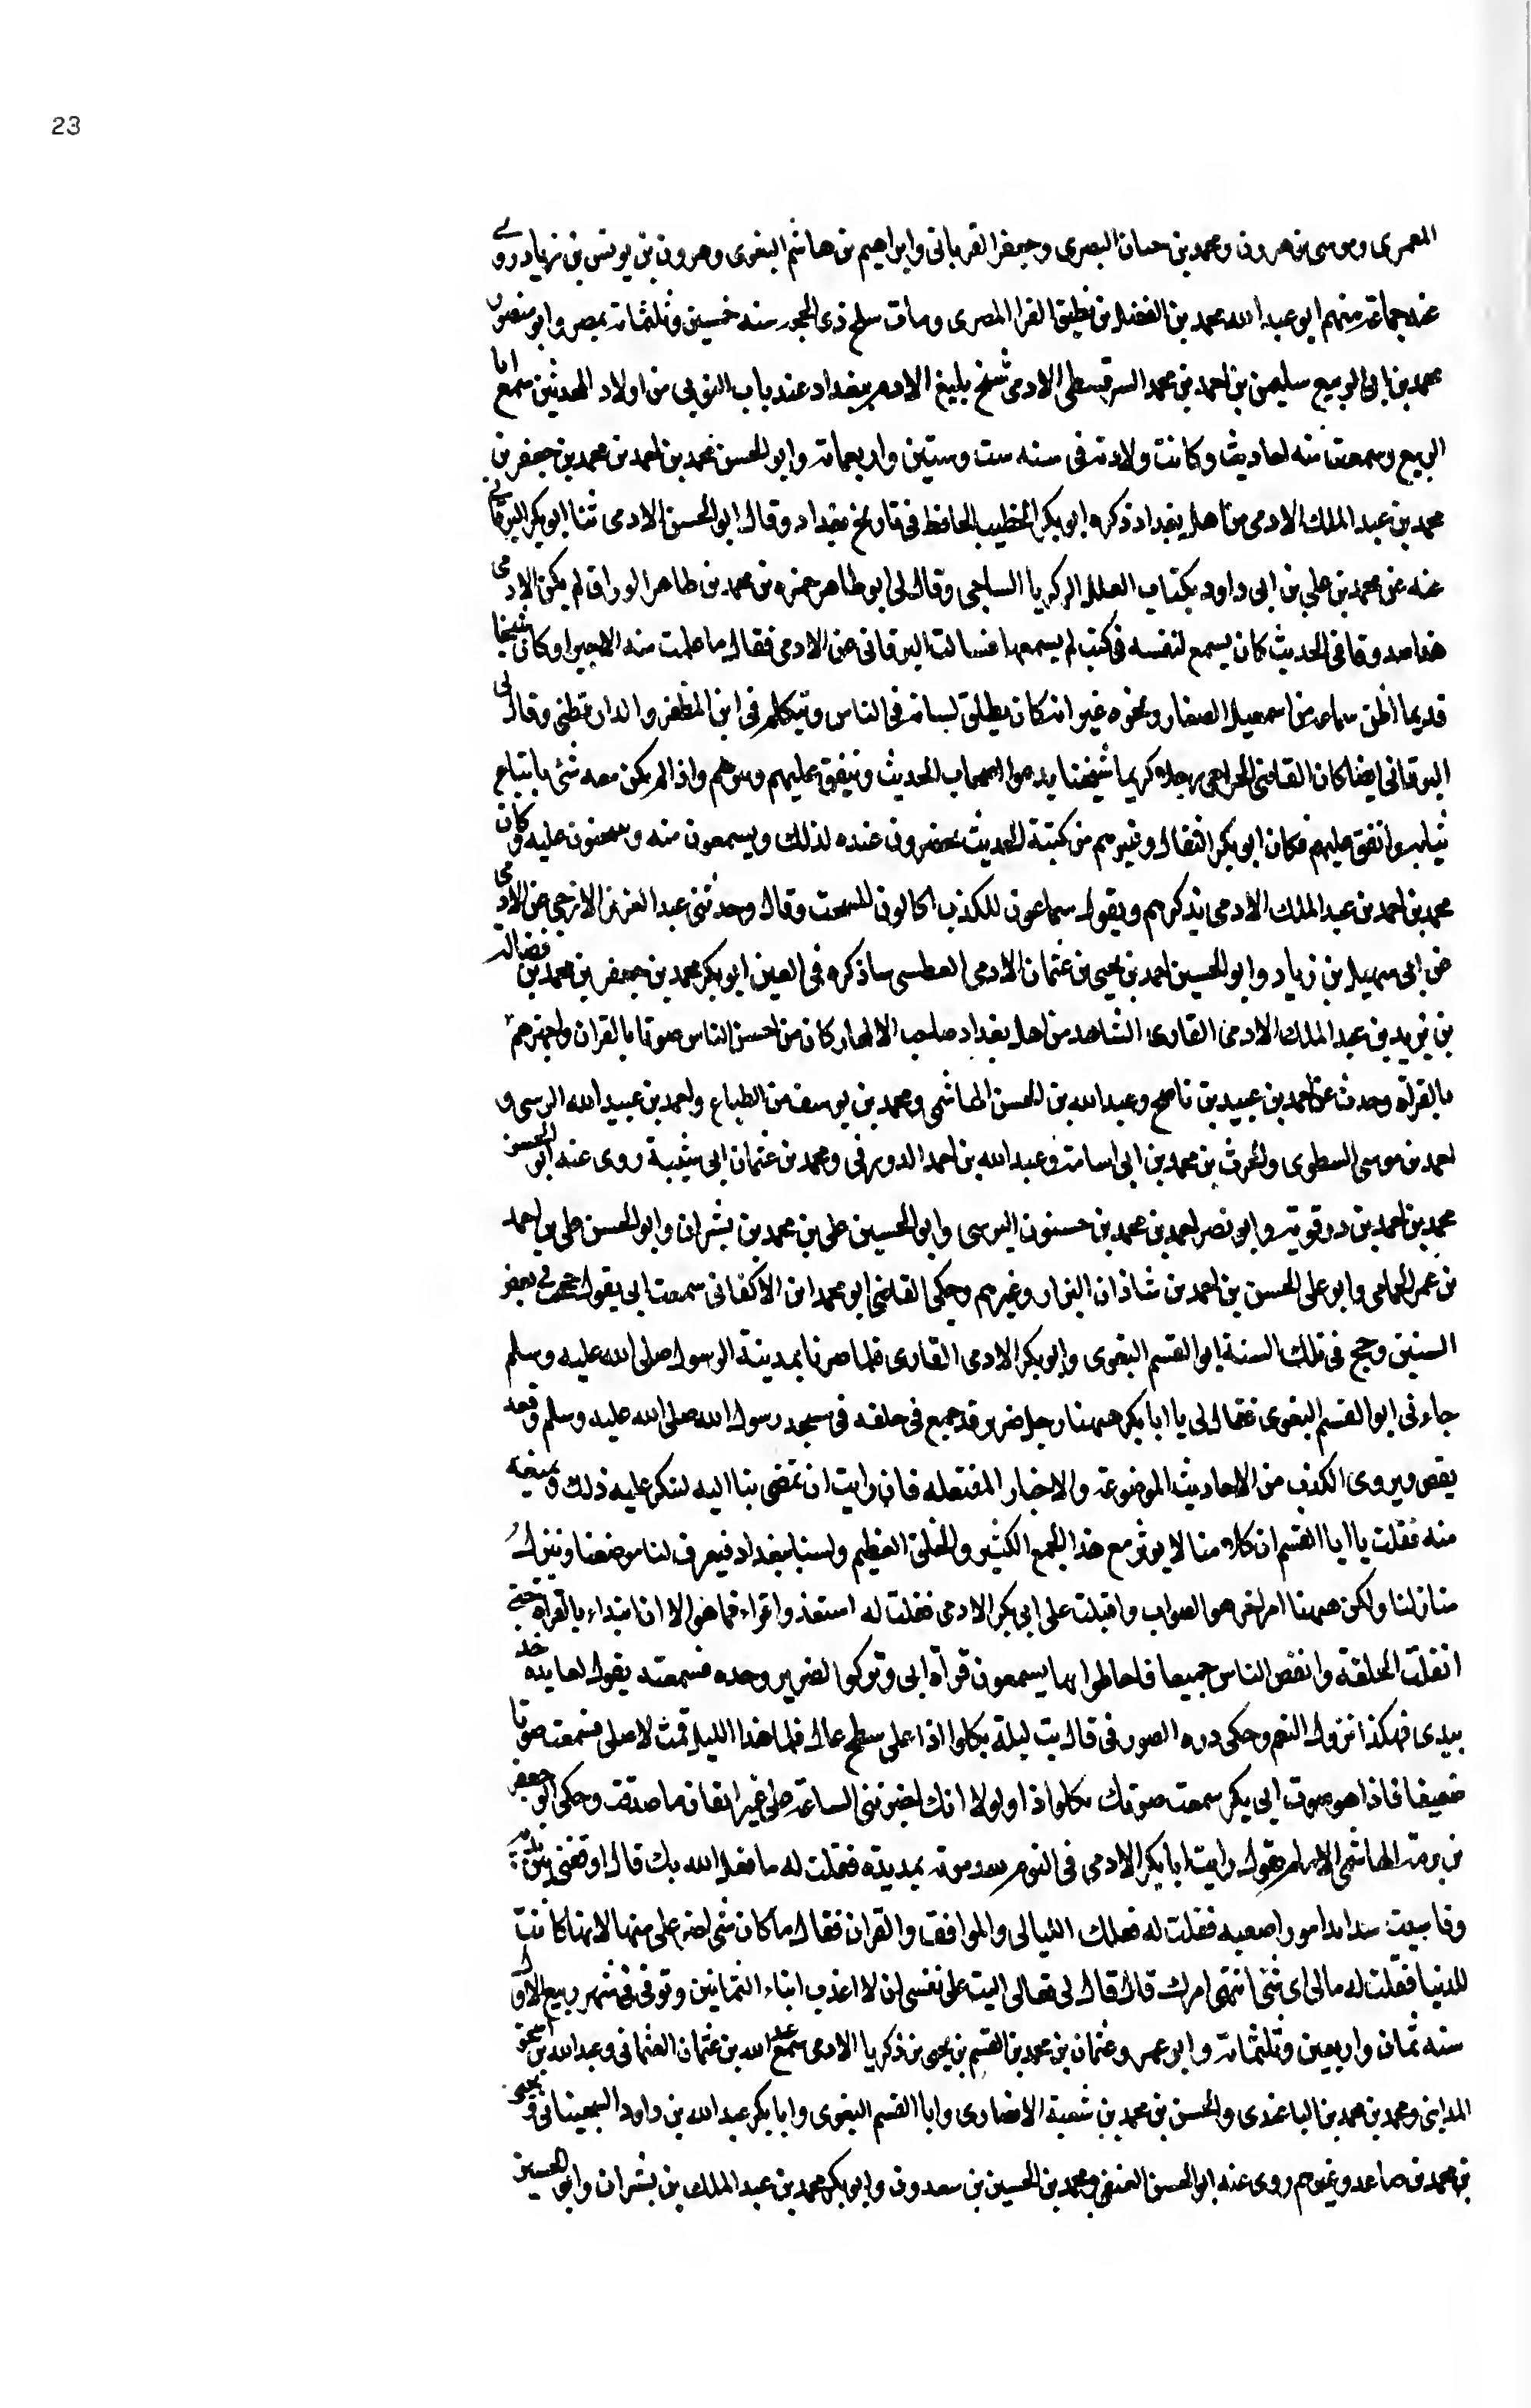 23
المعمرى وموسى بن هرون ومحمد بن حسان البصرى وجعفر الفريابى وابراهيم بن هاشم البغوى وهرون بن يوسف بن زياد روى
عنه جماعة منهم ابو عبد الله محمد بن الفضل بن نظيف الفرا المصرى ومات سلخ ذى الحجه سنه خمسين وثلثمائة بمصر وابو منصور
محمد بن ابى الربيع سليمن بن احمد بن محمد السرقسطى الادمى شيخ يبيع الادم ببغداد عند باب النوبى من اولاد المحدثين سمع ابا
الربيع وسمعت منه احاديث وكانت ولادته فى سنه ست وستين واربعمائة وابو الحسن محمد بن احمد بن محمد بن جعفر بن
محمد بن عبد الملك الادمى من اهل بغداد ذكره ابو بكر الخطيب الحافظ فى تاريخ بغداد وقال ابو الحسن الادمى ثنا ابو بكر البرقانى
عنه عن محمد بن على بن ابى داود بكتاب العلل لزكريا الساجى وقال لى ابو طاهر حمزه بن محمد بن طاهر الوراق لم يكن الادمى
هذا صدوقا فى الحديث كان يسمع لنفسه فى كتب لم يسمعها فسالت البرقانى عن الادمى فقال ما علمت منه الا خيرا وكان شيخا
قديما اظن سماعه من اسمعيل الصفار ونحوه غير انه كان يطلق لسانه فى الناس ويتكلم فى ابن المظفر والدارقطنى وقال لى
البرقانى ايضا كان القاضى الجراحى رجلا كريما شيخنا يدعوا اصحاب الحديث وينفق عليهم وبرهم واذا لم يكن معه شئ باع
ثيابه وانفق عليهم فكان ابو بكر البقال وغيرهم من كتبة الحديث يحضرون عنده لذلك ويسمعون منه عليه وكان
محمد بن احمد بن عبد الملك الادمى يذكرهم ويقول سماعون للكذب اكالون للسحت وقال وحدثنى عبد العزيز الازجى عن الادمى
عن ابى سهل بن زياد وابو الحسين احمد بن يحيى بن عثمان الادمى العطشى ساذكره فى العين ابو بكر محمد بن جعفر بن محمد بن فضاله
بن يزيد بن عبد الملك الادمى القارى الشاهد من اهل بغداد صاحب الالحان كان من احسن الناس صوتا بالقران واجهرهم
بالقراة وحدث عن احمد بن عبيد بن ناصح وعبد الله بن الحسن الهاشمى ومحمد بن يوسف بن الطباع واحمد بن عبيد الله النرسى و
احمد بن موسى الشطوى والحرث بن محمد بن ابى اسامة وعبد الله بن احمد الدورقى ومحمد بن عثمان ابى شيبة روى عنه ابو الحسن
محمد بن احمد بن رزقويه وابو نصر احمد بن محمد بن حسنون النرسى وابو الحسين على بن محمد بن بشران وابو الحسن على بن احمد
بن عمر الحمامى وابو على الحسن بن احمد بن شاذان البزار وغيرهم وحكى القاضى ابو محمد ابن الاكفانى سمعت ابى يقول حججت فى بعض
السنين وحج فى تلك السنة ابو القسم البغوى وابو بكر الادمى القارى فلما صرنا بمدينة الرسول صلى الله عليه وسلم
جاءنى ابو القسم البغوى فقال لى يا ابا بكر ههنا رجل ضرير قد جمع فى حلقه فى مسجد رسول الله صلى الله عليه وسلم وقعد
يقص ويروى الكذب من الاحاديث الموضوعة والاخبار المفتعله فان رايت ان تمضى بنا اليه لننكر عليه ذلك ونمنعه
منه فقلت يا ابا القسم ان كلامنا لا يوثر مع هذا الجمع الكثير والخلق العظيم ولسنا ببغداد فيعرف لنا موضعنا وننزل
منازلنا ولكن ههنا امر اخر هو الصواب واقبلت على ابى بكر الادمى فقلت له استعذ واقراء فما هو الا ان ابتداء بالقراة حتى
انفلت الحلقة وانفض الناس جميعا فاحاطوا بنا يسمعون قراة ابى وتركوا الضرير وحده فسمعته يقول لقايده خذ
بيدى فهكذا تزول النعم وحكى دره الصوفى قال بت ليلة بكلواذا على سطح عال فلما هدا الليل قمت لاصلى فسمعت صوتا
ضعيفا فاذا هو صوت ابى بكر سمعت صوتك بكلواذا ولولا انك اخبرتنى الساعة على غير اتفاق ما صدقت وحكى ابو جعفر
بن بريه الهاشمى الامام يقول رايت ابا بكر الادمى فى النوم بعد موته بمديدة فقلت له ما فعل الله بك قال اوقفنى بين يديه
وقاسيت شدايدا امورا صعبه فقلت له فتلك الليالى والمواقف والقران فقال ما كان شى اضر على منها لانها كانت
للدنيا فقلت له فالى اى شئ انتهى امرك قال قال لى تعالى اليت على نفسى ان لا اعذب ابناء الثمانين وتوفى فى شهر ربيع الاول
سنه ثمان واربعين وثلثمائة وابو عمر وعثمان بن محمد بن القسم بن يحيى بن زكريا الادمى سمع عبد الله بن عثمان العثمانى وعبد الله بن اسحق
المداينى ومحمد بن محمد بن الباغندى والحسن بن محمد بن شعبة الانصارى وابا القسم البغوى وابا بكر عبد الله بن داود السجستانى ويحيى
بن محمد بن صاعد وغيرهم روى عنه ابو الحسن العتيقى ومحمد بن الحسين بن سعدون وابو بكر محمد بن عبد الملك بن بشران وابو الحسين